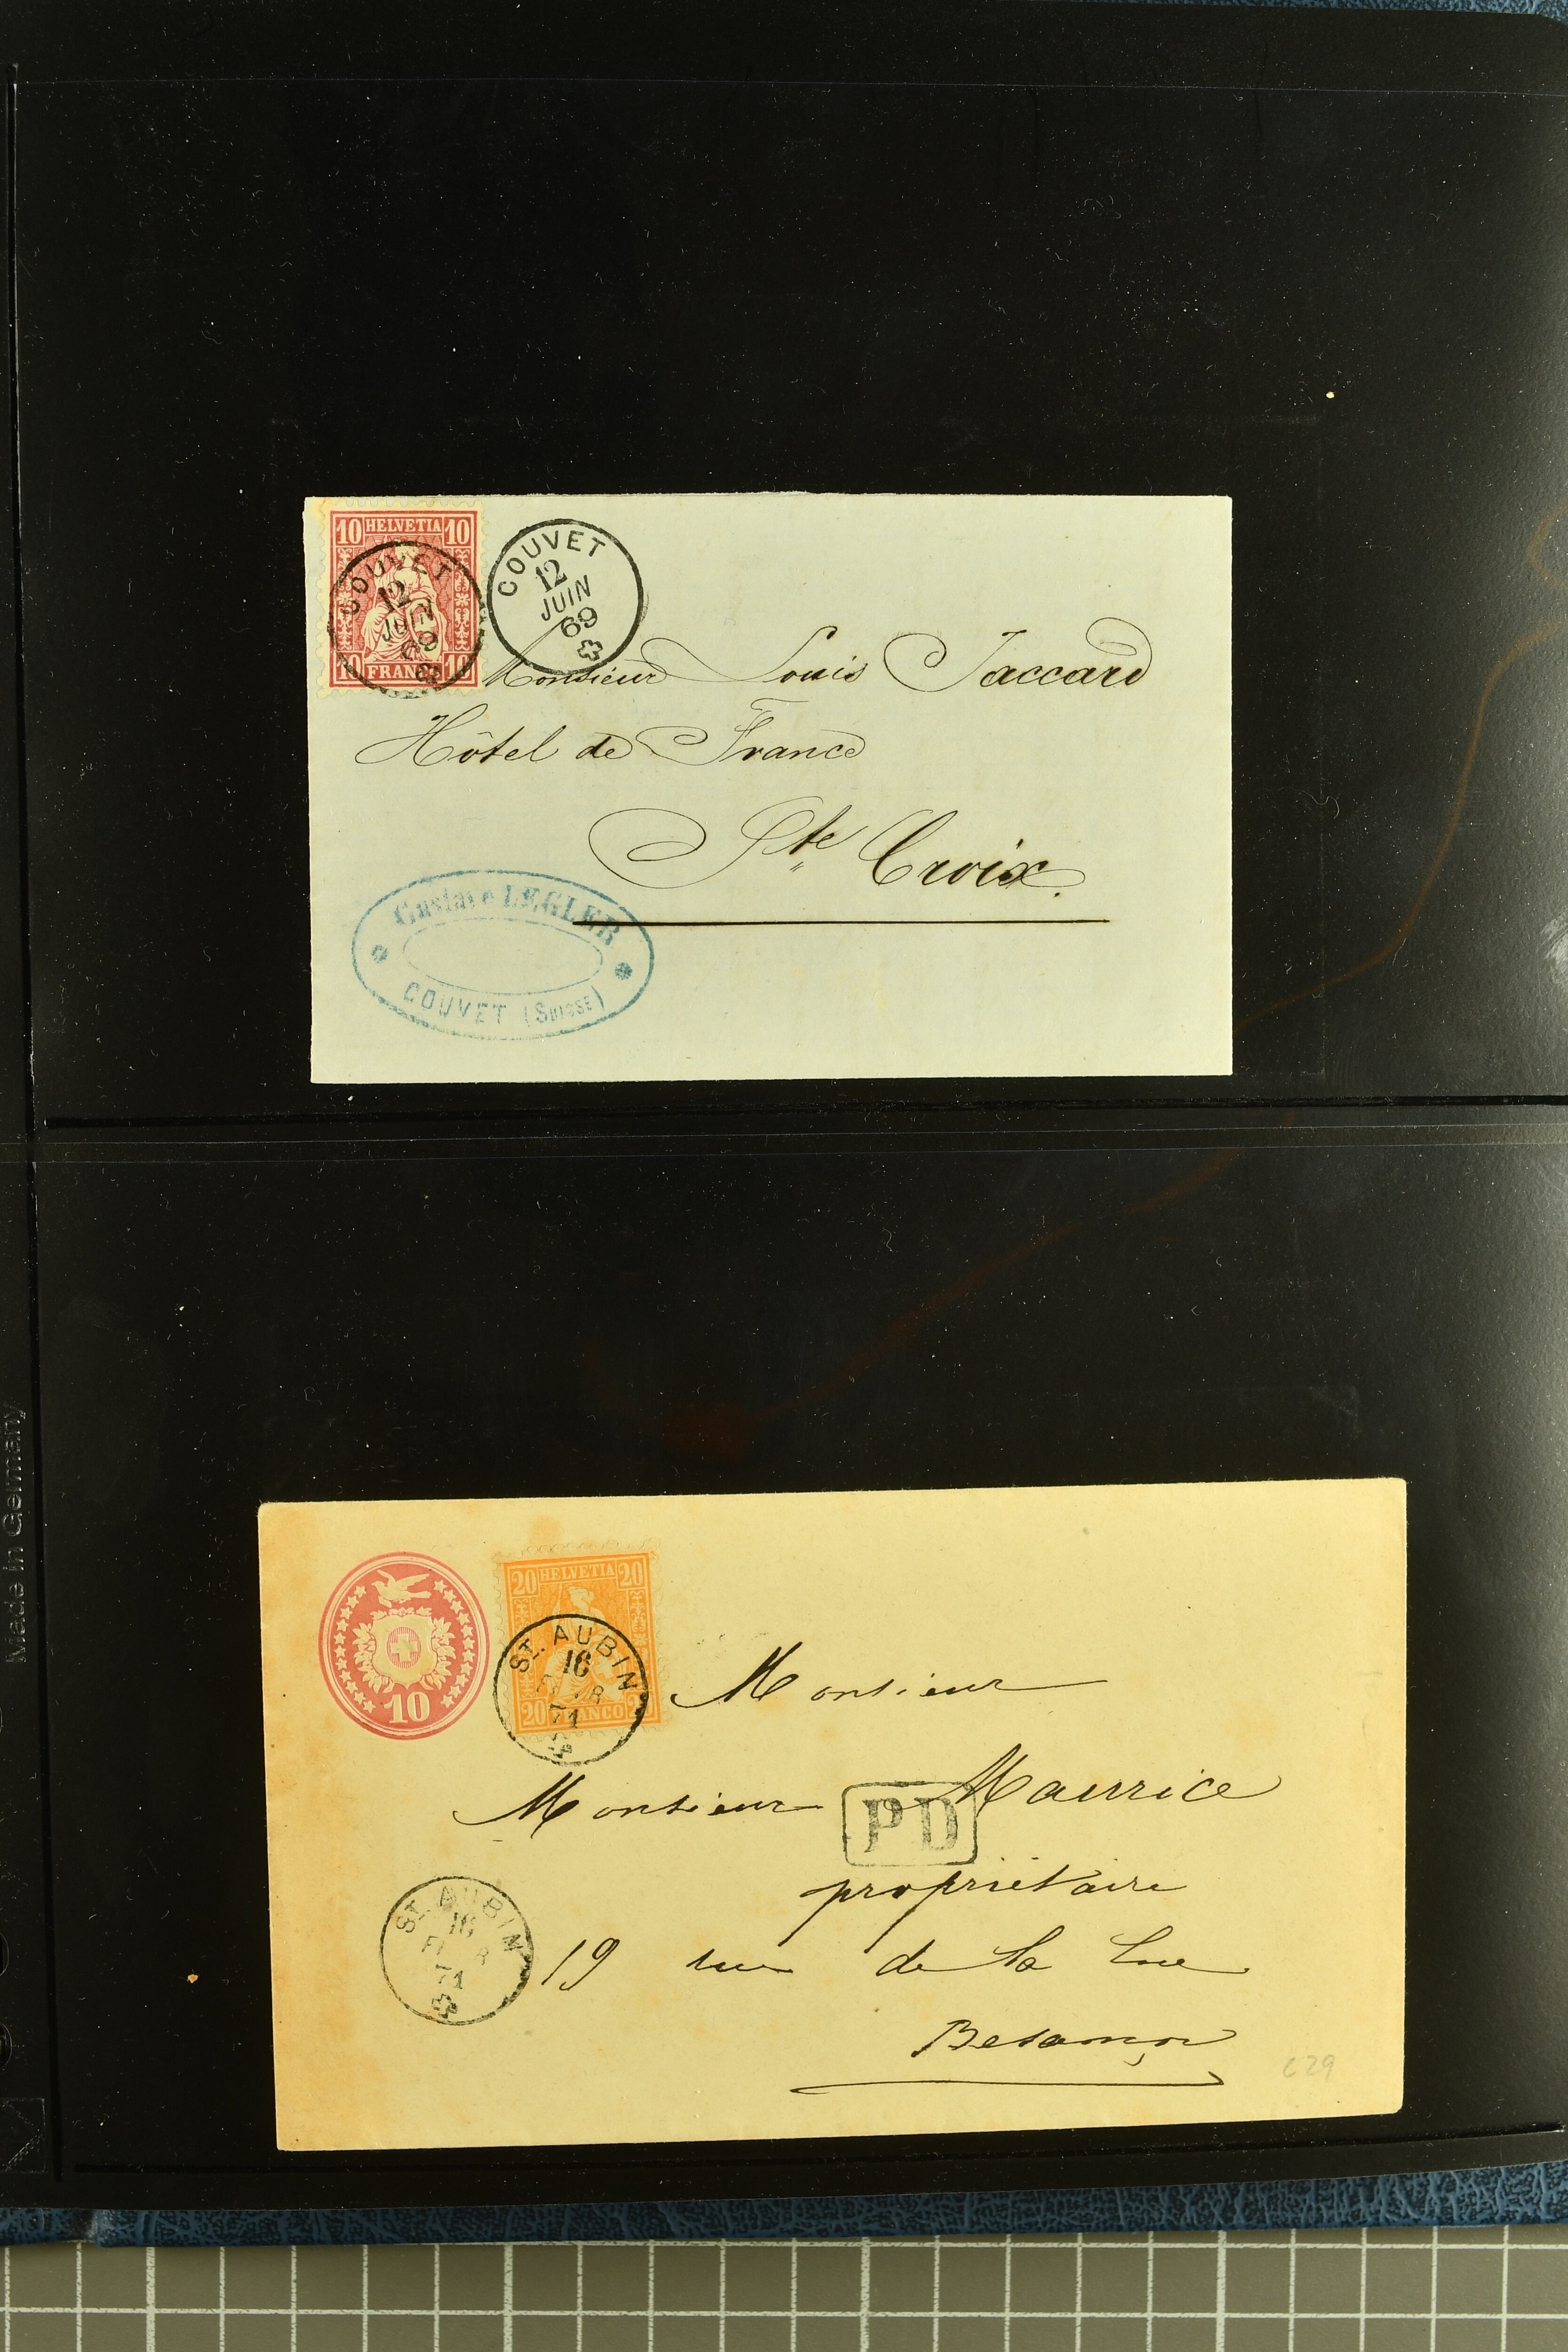 10 HELVETIA 10
10 FRANCO 10
COUVET
12
JUIN
69
COUVET
12
JUIN
69
Monsieur Louis Jaccard
Hôtel de France
Ste Croix.
Gustave LEGLER
COUVET (SUISSE)
Made in Germany
10
20 HELVETIA 20
20 FRANCO 20
ST. AUBIN
16
71
Monsieur
Monsieur Maurice
PD
propriétaire
ST. AUBIN
16
71
19 rue de la
Besançon
629